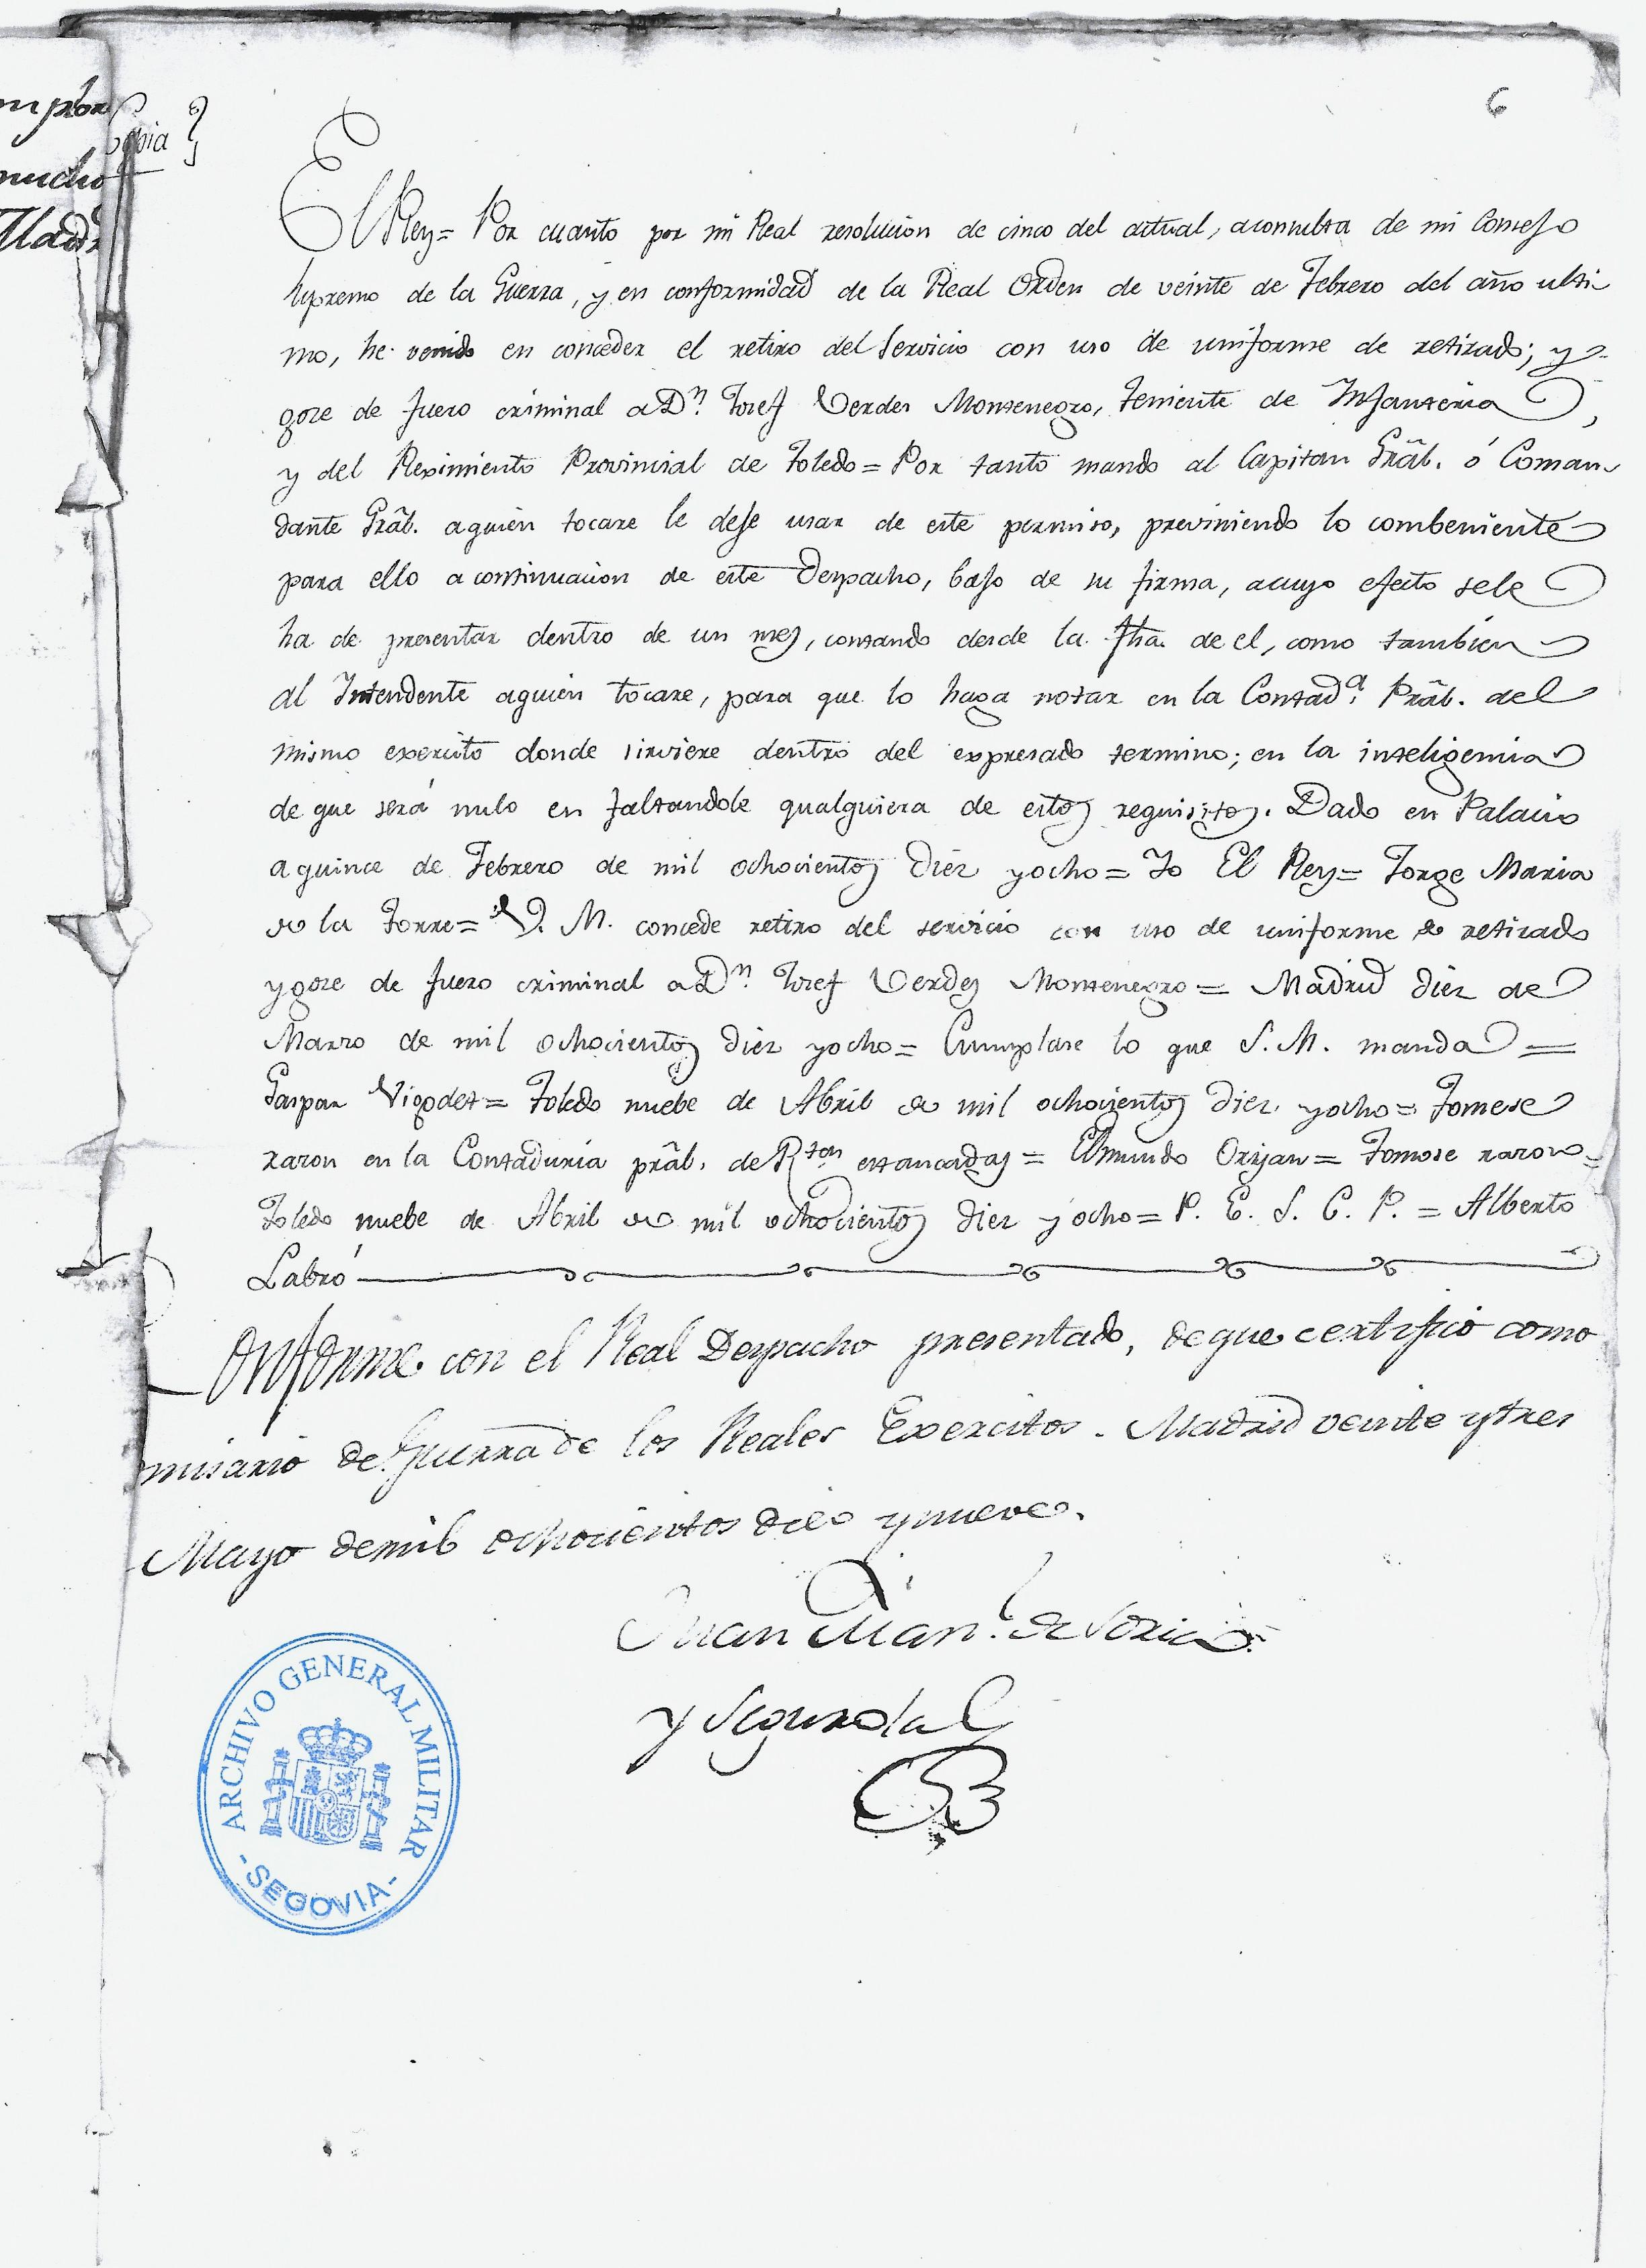 6
copia
mucho
El Rey= Por cuanto por mi Real resolucion de cinco del actual, aconsulta de mi Consejo
Supremo de la Guerra, y en conformidad de la Real Orden de veinte de Febrero del año ulti-
mo, he venido en conceder el retiro del Servicio con uso de uniforme de retirado; y
goze de fuero criminal a Dn. Josef Verdes Montenegro, teniente de Infanteria,
y del Reximiento Provincial de Toledo= Por tanto mando al Capitan Grãl. ó Coman-
dante Grãl. aquien tocare le deje usar de este permiso, previniendo lo combeniente
para ello acontinuacion de este Despacho, bajo de su firma, acuyo efecto sele
ha de presentar dentro de un mes, contando desde la fha. de el, como tambien
al Intendente aquien tocare, para que lo haga notar en la Contada. Prãl. del
mismo exercito donde sirviere dentro del expresado termino; en la inteligencia
de que será nulo en faltandole qualquiera de estos requisitos. Dado en Palacio
a quince de Febrero de mil ochocientos diez yocho= Yo El Rey= Jorge Maria
de la Torre= V. M. concede retiro del servicio con uso de uniforme de retirado
ygoze de fuero criminal a Dn Josef Verdes Montenegro= Madrid diez de
Marzo de mil ochocientos diez yocho= Cumplase lo que S. M. manda=
Gaspar Vigodet= Toledo nuebe de Abril de mil ochocientos diez yocho= Tomese
razon en la Contaduria prãl. de Rtas estancadas= Edmundo Orijan= Tomose razon=
Toledo nuebe de Abril de mil ochocientos diez yocho= P. E. S. C. P. = Alberto
Labró
Conforme con el Real Despacho presentado, de que certifico como
misario de Guerra de los Reales Exercitos. Madrid veinte ytres
Mayo demil ochocientos diez ynueve.
Juan Manl. de Soria
y Segundo
ARCHIVO GENERAL MILITAR
-SEGOVIA-